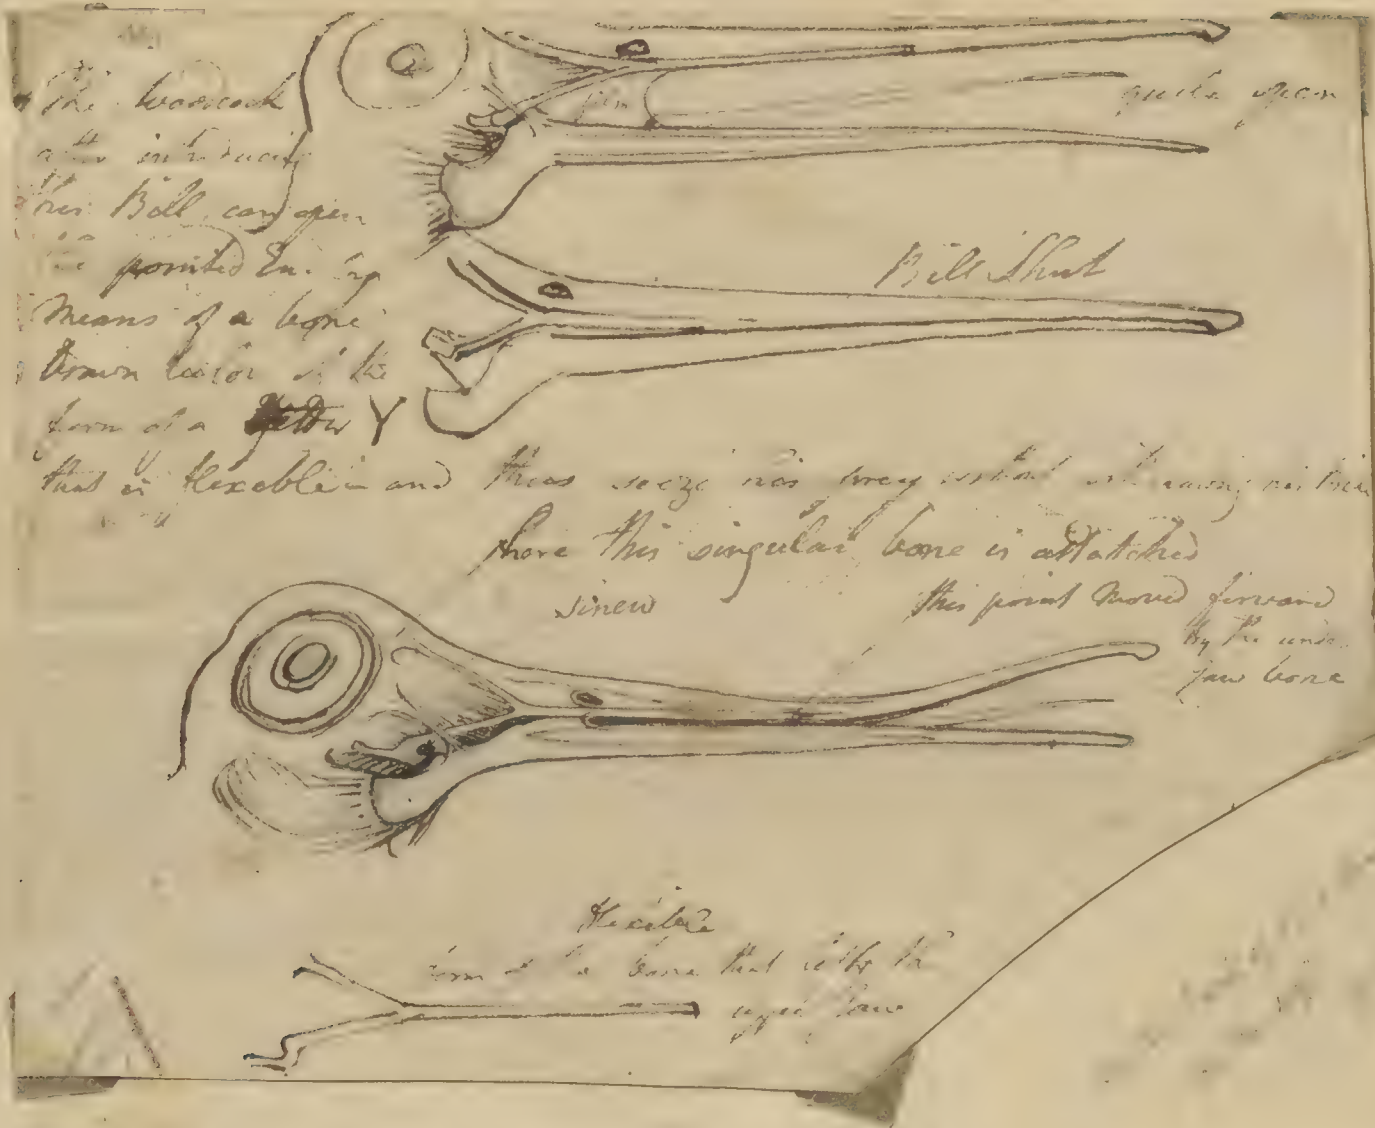 The Woodcock
after introducing
his Bill, can open
the pointed En. by
means of a bone
brown color in the
form of a letter Y
that is flexeble and thus seize his prey without
here this singular bone is attatched
sinew
this point moved forward
by the under
jaw bone
quite open
Bill Shut
flexible
form of the bone that lifts the
upper Jaw